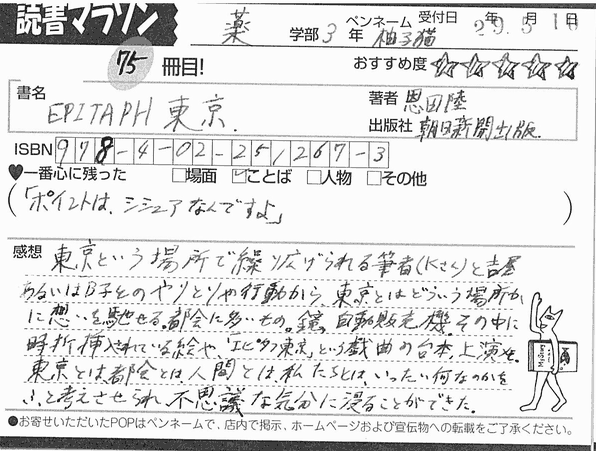 読書マラソン
薬 学部 3 年 ペンネーム 柚子猫 受付日 29年 5月 16日
75 冊目! おすすめ度 ☆☆☆☆☆
書名 EPITAPH 東京. 著者 恩田陸
出版社 朝日新聞出版.
ISBN 978-4-02-251267-3
♥一番心に残った □場面 ☑ことば □人物 □その他
(「ポイントは、シジュアなんですよ」)
感想 東京という場所で繰り広げられる筆者(Kさん)と吉屋
あるいはB子とのやりとりや行動から、東京とはどういう場所か
に想いを馳せる。都会に多いもの。鏡、自動販売機 その中に
時折挿入されている絵や、「エピタフ東京」という戯曲の台本、上演を。
東京とは、都会とは、人間とは、私たちとは、いったい何なのかを
ふと考えさせられ、不思議な気分に浸ることができた。
●お寄せいただいたPOPはペンネームで、店内で掲示、ホームページおよび宣伝物への転載をご了承ください。